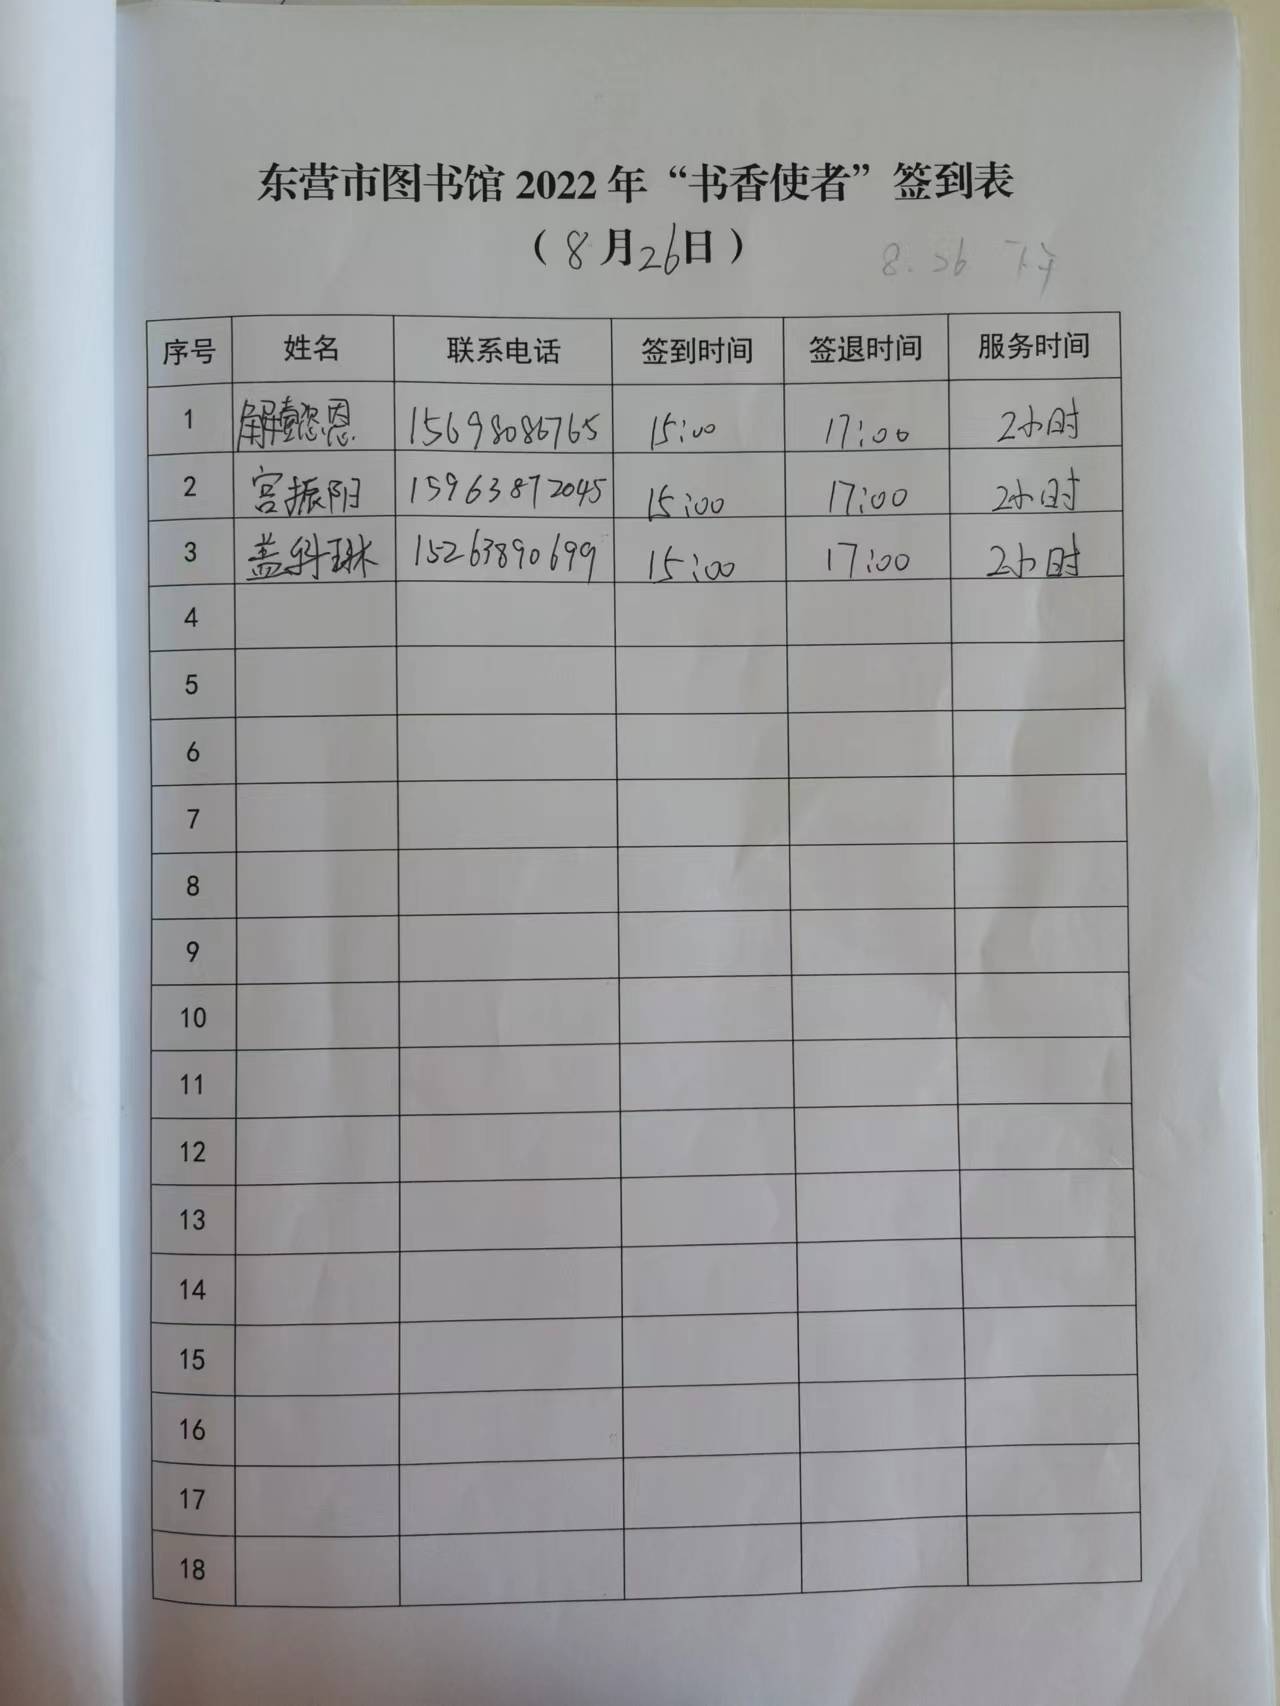 东营市图书馆 2022 年“书香使者”签到表
（8月26日）
8.26 下午
序号 姓名 联系电话 签到时间 签退时间 服务时间
1 解懿恩 15698086765 15:00 17:00 2小时
2 宫振阳 15963872045 15:00 17:00 2小时
3 盖科琳 15263890699 15:00 17:00 2小时
4
5
6
7
8
9
10
11
12
13
14
15
16
17
18